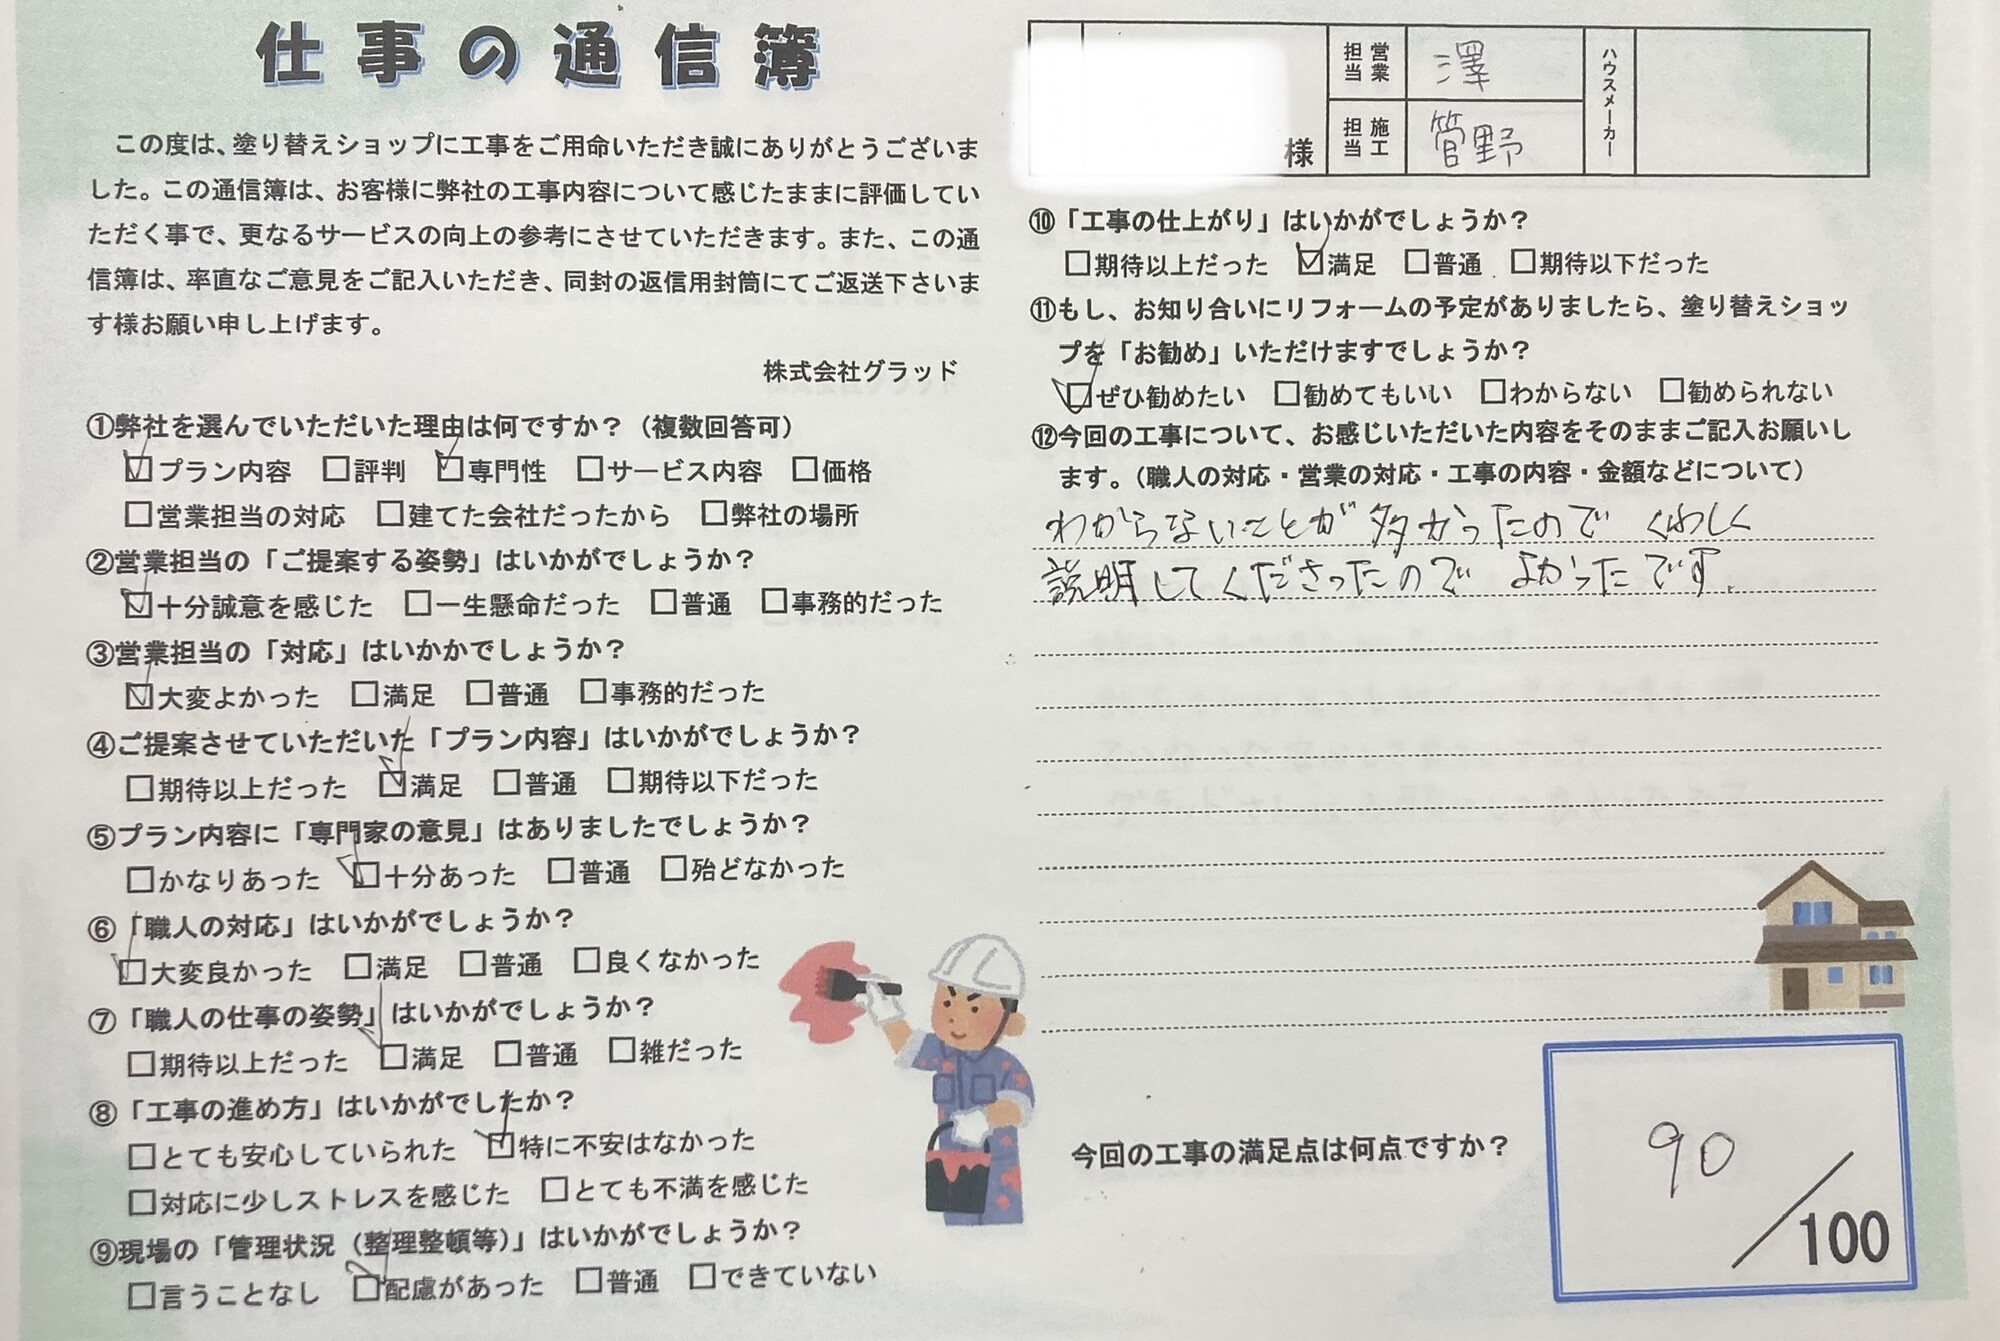 仕事の通信簿
この度は、塗り替えショップに工事をご用命いただき誠にありがとうございま
した。この通信簿は、お客様に弊社の工事内容について感じたままに評価してい
ただく事で、更なるサービスの向上の参考にさせていただきます。また、この通
信簿は、率直なご意見をご記入いただき、同封の返信用封筒にてご返送下さいま
す様お願い申し上げます。
株式会社グラッド
①弊社を選んでいただいた理由は何ですか？（複数回答可）
☑プラン内容 □評判 ☑専門性 □サービス内容 □価格
□営業担当の対応 □建てた会社だったから □弊社の場所
②営業担当の「ご提案する姿勢」はいかがでしょうか？
☑十分誠意を感じた □一生懸命だった □普通 □事務的だった
③営業担当の「対応」はいかかでしょうか？
☑大変よかった □満足 □普通 □事務的だった
④ご提案させていただいた「プラン内容」はいかがでしょうか？
□期待以上だった ☑満足 □普通 □期待以下だった
⑤プラン内容に「専門家の意見」はありましたでしょうか？
□かなりあった ☑十分あった □普通 □殆どなかった
⑥「職人の対応」はいかがでしょうか？
☑大変良かった □満足 □普通 □良くなかった
⑦「職人の仕事の姿勢」はいかがでしょうか？
□期待以上だった ☑満足 □普通 □雑だった
⑧「工事の進め方」はいかがでしたか？
□とても安心していられた ☑特に不安はなかった
□対応に少しストレスを感じた □とても不満を感じた
⑨現場の「管理状況（整理整頓等）」はいかがでしょうか？
□言うことなし ☑配慮があった □普通 □できていない
様
営業担当 澤
施工担当 管野
ハウスメーカー
⑩「工事の仕上がり」はいかがでしょうか？
□期待以上だった ☑満足 □普通 □期待以下だった
⑪もし、お知り合いにリフォームの予定がありましたら、塗り替えショッ
プを「お勧め」いただけますでしょうか？
☑ぜひ勧めたい □勧めてもいい □わからない □勧められない
⑫今回の工事について、お感じいただいた内容をそのままご記入お願いし
ます。（職人の対応・営業の対応・工事の内容・金額などについて）
わからないことが多かったので くわしく
説明してくださったので よかったです。
今回の工事の満足点は何点ですか？
90
/100